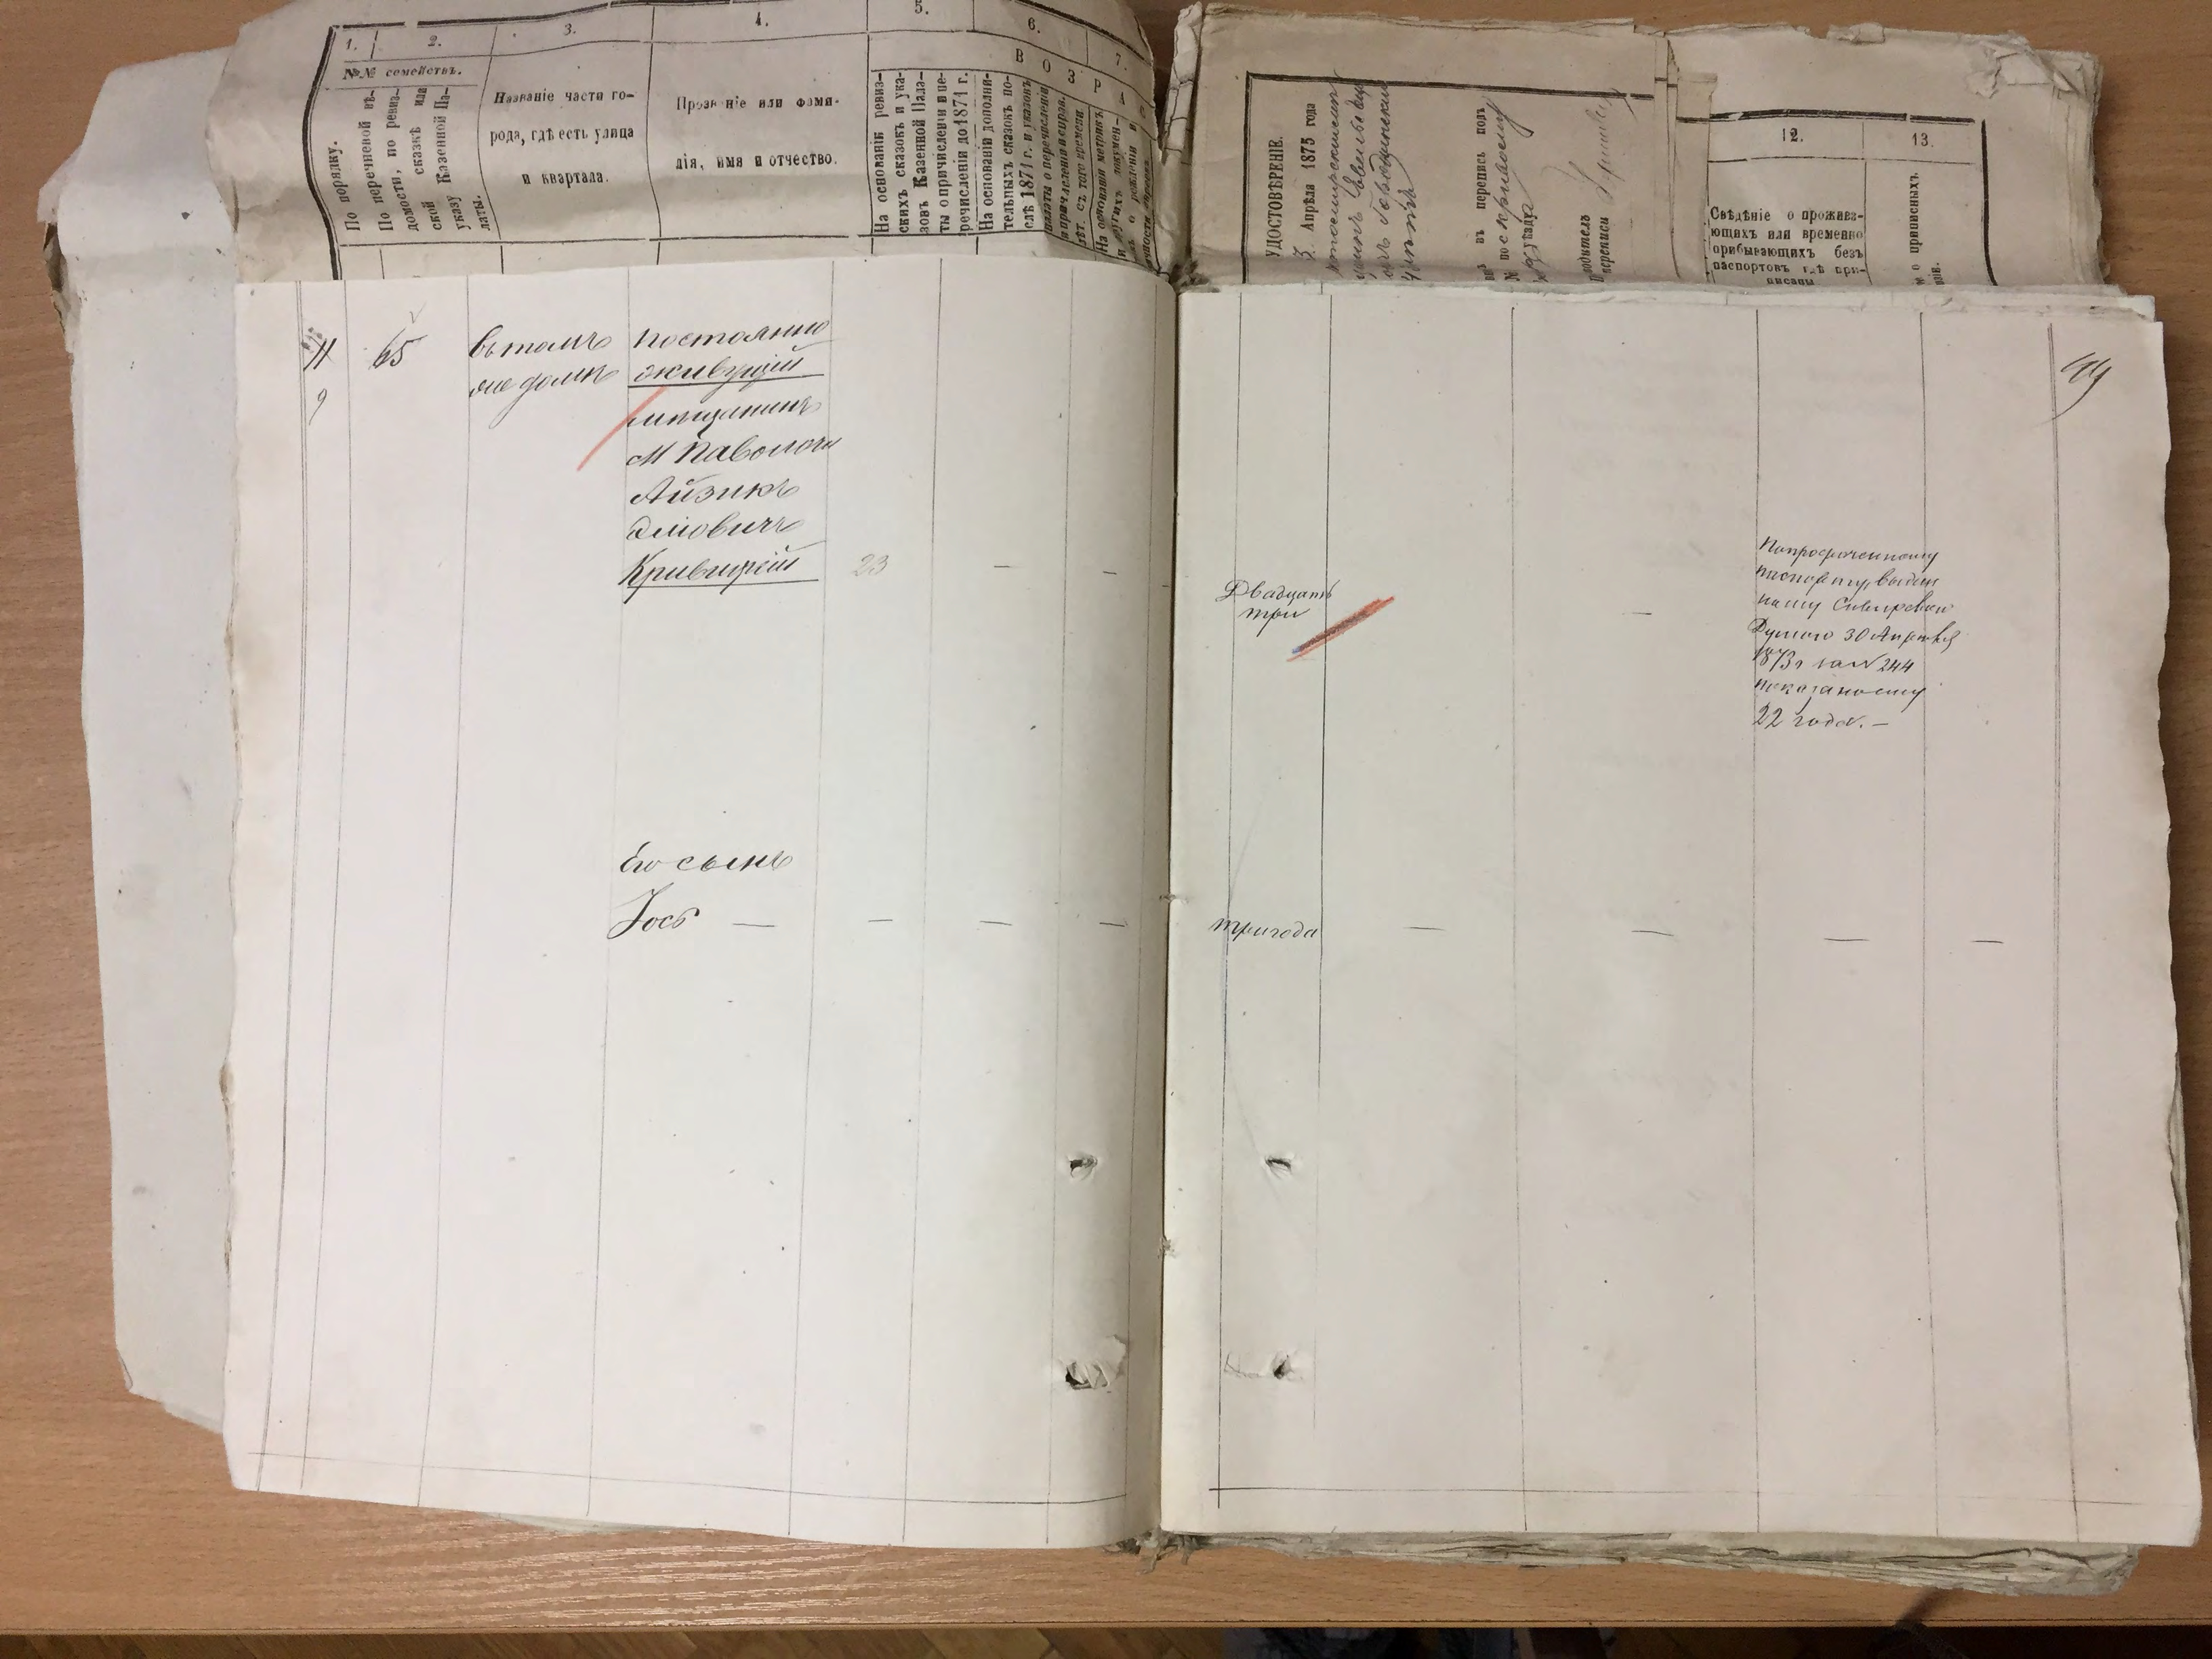 1.
2.
3.
4.
5.
6.
7.
№№ семействъ.
По порядку.
По перечневой вѣ-
домости, по ревиз-
ской сказкѣ или
указу Казенной Па-
латы.
Названіе части го-
рода, гдѣ есть улица
и квартала.
Прозваніе или фами-
лія, имя и отчество.
В О З Р А
На основаніи ревиз-
скихъ сказокъ и ука-
зовъ Казенной Пала-
ты о причисленіи и пе-
речисленіи до 1871 г.
На основаніи дополни-
тельныхъ сказокъ по-
слѣ 1871 г. и указовъ
палаты о перечисленіи
съ того времени.
На основаніи метрикъ
и другихъ докумен-
о рожденіи
УДОСТОВѢРЕНІЕ.
3. Апрѣля 1875 года
въ перепись подъ
№
уѣзда
переписи
12.
13.
Свѣдѣніе о прожива-
ющихъ или временно
прибывающихъ безъ
паспортовъ гдѣ при-
писаны
о приписныхъ.
11
9
65
въ томъ
же домѣ
постоянно
живущій
мѣщанинъ
м Паволочи
Айзикъ
Эліовичъ
Кривицкій
23
—
—
Двадцать
три
—
паспорту, выдан
Думою 30
1873 г за № 244
показаному
22 года. —
Его сынъ
Іось —
—
—
—
три года
—
—
—
—